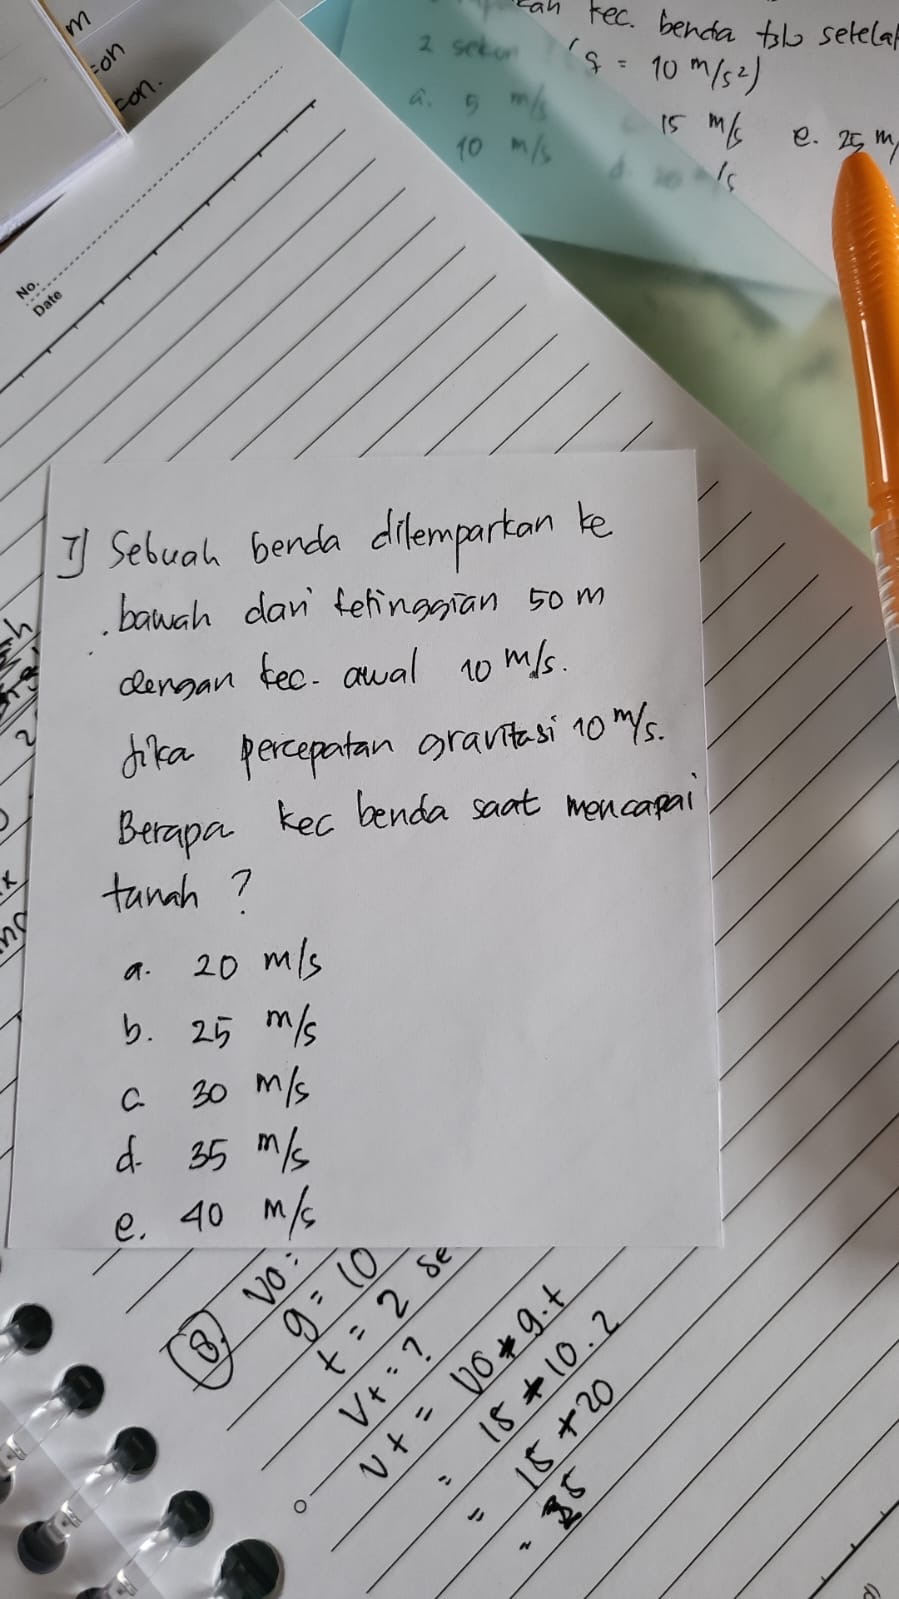 m
con.
kec. benda tsb setelah
2 sekon (g = 10 m/s²)
a. 5 m/s
15 m/s e. 25 m/
10 m/s d. 20 m/s
No.
Date
7) Sebuah benda dilemparkan ke
bawah dari ketinggian 50 m
dengan kec. awal 10 m/s.
Jika percepatan gravitasi 10 m/s.
Berapa kec benda saat mencapai
tanah ?
a. 20 m/s
b. 25 m/s
c 30 m/s
d. 35 m/s
e. 40 m/s
8. Vo =
g = 10
t = 2 se
Vt = ?
Vt = Vo + g.t
= 15 + 10.2
= 15 + 20
= 35